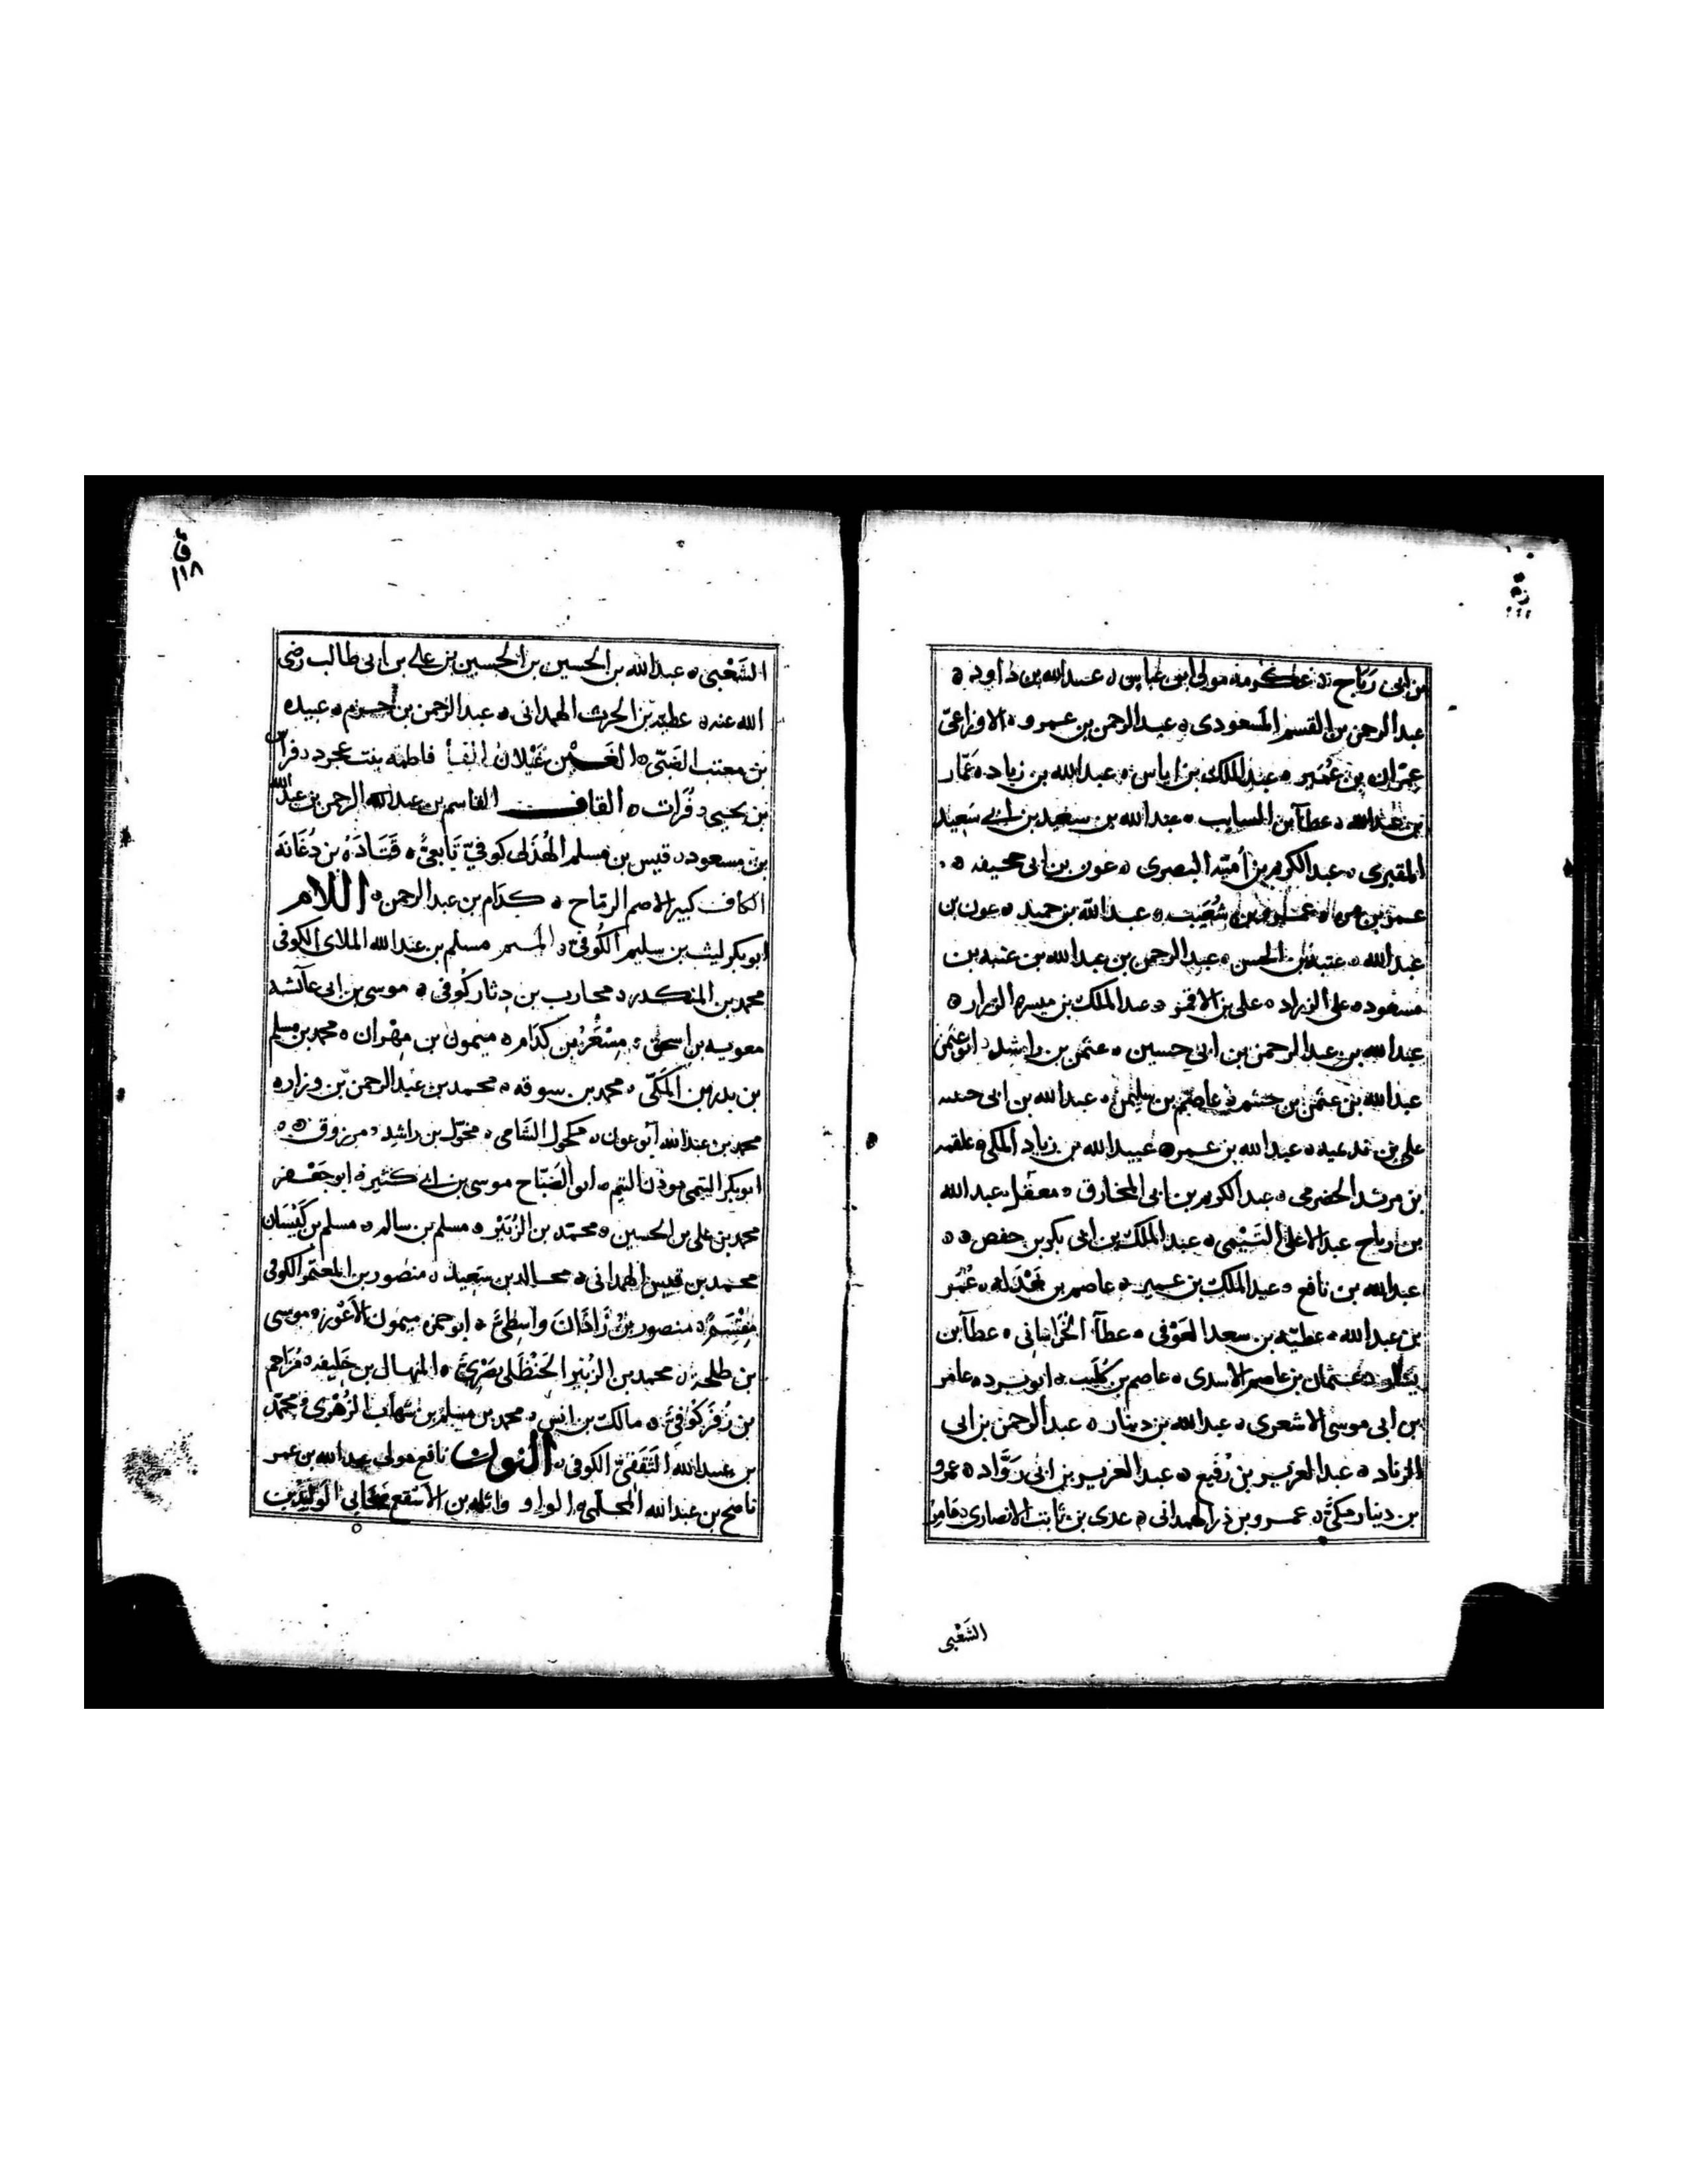 بن ابى رباح ه عكرمه مولى ابن عباس ه عبدالله بن داود ه
عبدالرحمن بن القسم المسعودى ه عبدالرحمن بن عمرو ه الاوزاعى
عمران بن عمير ه عبدالملك بن اياس ه عبدالله بن زياد ه عمار
بن عبدالله ه عطآ بن السايب ه عبدالله بن سعيد بن ابى سعيد
المقبرى ه عبدالكريم بن أميّه البصرى ه عون بن ابى جحيفه ه
عمرو بن مره ه عمرو بن شعيب ه عبدالله بن حميد ه عون بن
عبدالله ه عتبة بن الحسن ه عبدالرحمن بن عبدالله بن عتبه بن
مسعود ه على الزراد ه على بن الاقمر ه عبدالملك بن ميسره الزراد ه
عبدالله بن عبدالرحمن بن ابى حسين ه عثمن بن راشد ه ابو عثمن
عبدالله بن عثمن بن خثيم ه عاصم بن سليمن ه عبدالله بن ابى
على بن ه عبدالله بن عمر ه عبيدالله بن زياد المكى ه علقمه
بن مرثد الحضرمى ه عبدالكريم بن ابى المخارق ه معقل عبدالله
بن رباح عبدالاعلى التيمى ه عبدالملك بن ابى بكر بن حفص ه ه
عبدالله بن نافع ه عبدالملك بن عمير ه عاصم بن بَهْدَله ه عُمَر
بن عبدالله ه عطيّه بن سعد العَوْفى ه عطآ الخراسانى ه عطآ بن
يسار ه عثمان بن عاصم الاسدى ه عاصم بن كُلَيب ه ابو برده عامر
بن ابى موسى الاشعرى ه عبدالله بن دينار ه عبدالرحمن بن ابى
الزناد ه عبدالعزيز بن رُفَيع ه عبدالعزيز بن ابى رَوَّاد ه عمرو
بن دينار مكىّ ه عمرو بن ذر الهمدانى ه عدى بن ثابت الانصارى ه عامر
الشَعْبى
ق
١١٨
الشَعْبى ه عبدالله بن الحسين بن الحسين بن على بن ابى طالب رضى
الله عنه ه عطيه بن الحرث الهمدانى ه عبدالرحمن بن حزم ه عبيده
بن معتب الضَبّى ه الغين غَيْلان الفآ فاطمه بنت عجرد ه فراس
بن يحيى ه فُرَات ه القاف القاسم بن عبدالرحمن بن عبدالله
بن مسعود ه قيس بن مسلم الهُذَلى كوفىّ تَابعىٌ ه قَتَادَهُ بن دُعَانَهَ
الكاف كبير الاصم الرتاح ه كِدَام بن عبدالرحمن ه اللام
ابوبكر ليث بن سليم الكُوفى ه الميم مسلم بن عبدالله الملاى الكوفى
محمد بن المنكدر ه محارب بن دِثار كُوفى ه موسى بن ابى عآئشه
معويه بن اسحق ه مِسْعَرُ بن كدَام ه ميمون بن مِهْران ه محمد بن مسلم
بن بدرس المكىّ ه محمد بن سوقه ه محمد بن عبدالرحمن بن زراره
محمد بن عبدالله ابو عون ه مكحول الشامى ه مخوّل بن راشِد ه مرزوق ه ه
ابوبكر التيمى موذن التيم ه ابو الصَبّاح موسى بن ابى كثير ه ابو جَعْفر
محمد بن على بن الحسين ه محمّد بن الزُبَيْر ه مسلم بن سالم ه مسلم بن كَيْسَان
محمد بن قيس الهمدانى ه مجالد بن سَعِيد ه منصور بن المعتمر الكوفى
مِقْسَم ه منصور بن زاذان واسِطىّ ه ابو حمزه ميمون الاَعْوَر ه موسى
بن طلحه ه محمد بن الزُبير الحَنظَلى بَصْرىّ ه المنهال بن خَليفه ه مُزَاحم
بن زُفَر كوفىّ ه مالك بن انس ه محمد بن مسلم بن شهاب الزُهْرى ه محمّد
بن عبيدالله الثَقَفىّ الكوفى ه النون نافع مولى عبدالله بن عمر
ناصح بن عبدالله المحلمى ه الواو واثله بن الاسقع صحابى الوليد بن